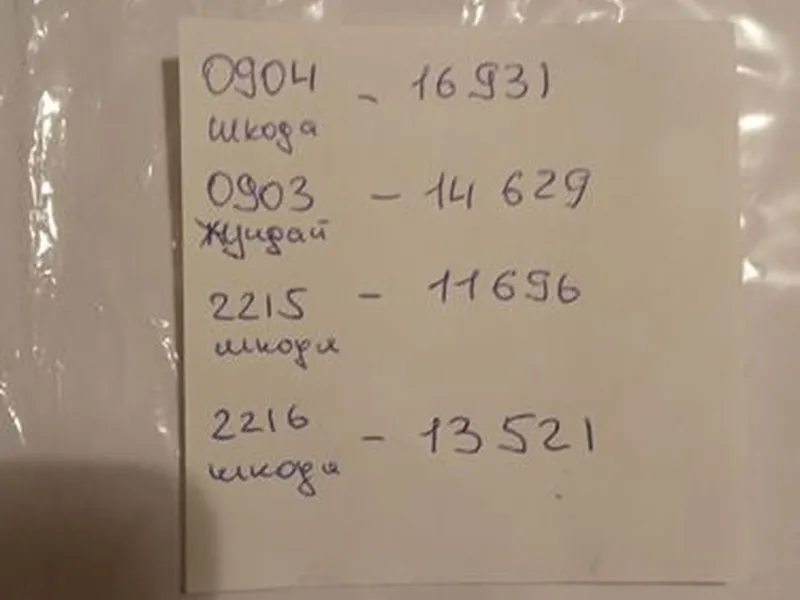 0904 - 16931
шкода
0903 - 14 629
Жундай
2215 - 11696
шкода
2216 - 13 521
шкода